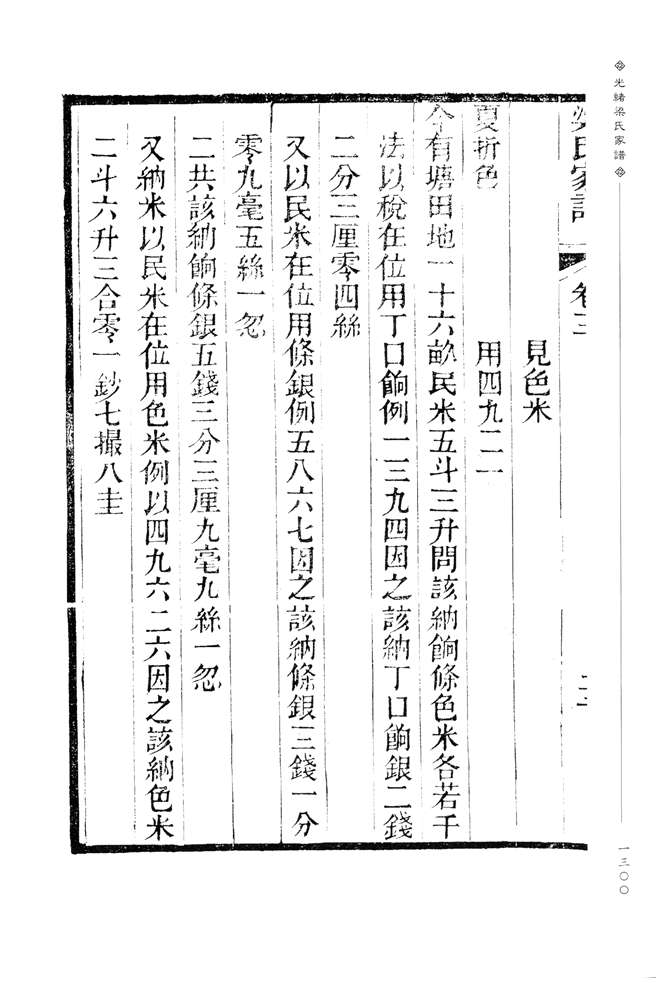 光緒梁氏家譜
梁氏家譜 卷三
見色米
夏折色 用四九二一
今有塘田地一十六畝民米五斗三升問該納餉條色米各若干
法以稅在位用丁口餉例一三九四因之該納丁口餉銀二錢
二分三厘零四絲
又以民米在位用條銀例五八六七因之該納條銀三錢一分
零九毫五絲一忽
二共該納餉條銀五錢三分三厘九毫九絲一忽
又納米以民米在位用色米例以四九六二六因之該納色米
二斗六升三合零一鈔七撮八圭
一三〇〇